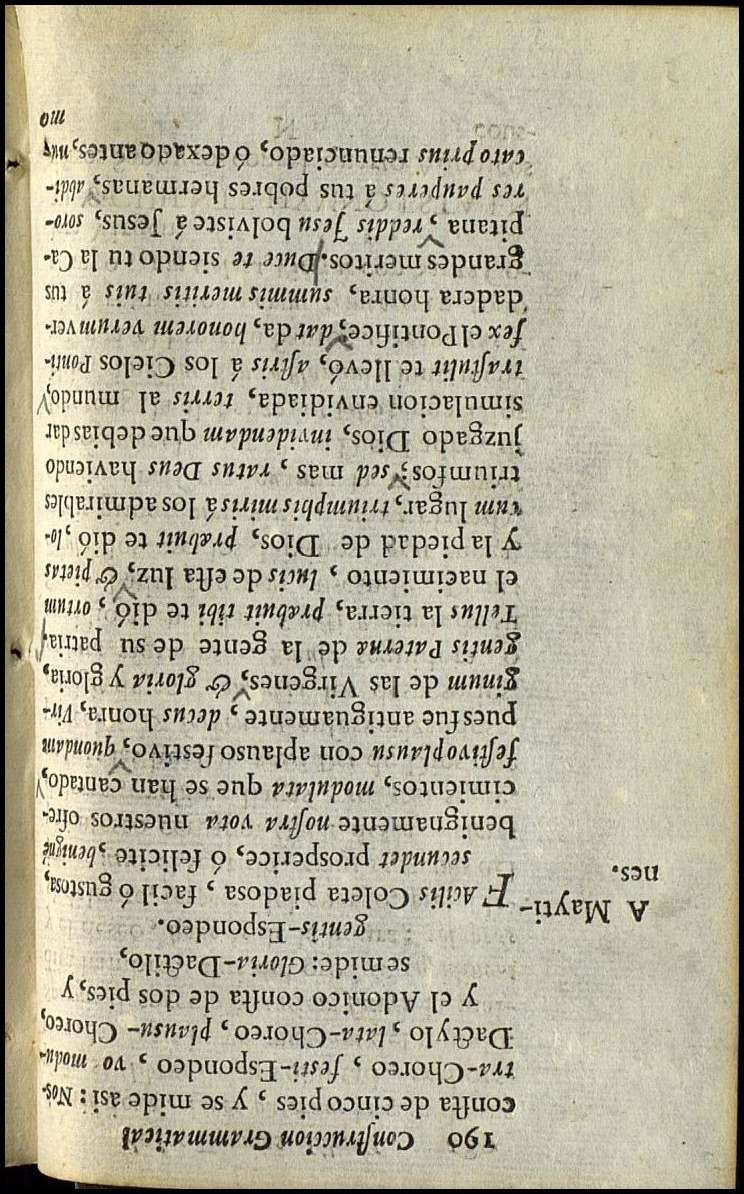 190 Construccion Grammatical
consta de cinco pies , y se mide asi : Nos-
tra-Choreo , festi-Espondeo , vo modu-
Dactylo , lata-Choreo , plausu- Choreo,
y el Adonico consta de dos pies, y
se mide: Gloria-Dactilo,
gentis-Espondeo.
A Mayti-
nes.
FAcilis Coleta piadosa , facil ó gustosa,
secundet prosperice, ó felicite , benignè
benignamente nostra vota nuestros ofre-
cimientos, modulata que se han cantado,
festivo plausu con aplauso festivo, quondam
pues fue antiguamente , decus honra, Vir-
ginum de las Virgenes, & gloria y gloria,
gentis Paternæ de la gente de su patria,
Tellus la tierra, præbuit tibi te dió , ortum
el nacimiento , lucis de esta luz, & pietas
y la piedad de Dios, præbuit te dió , lo-
cum lugar, triumphis miris á los admirables
triumfos; sed mas , ratus Deus haviendo
juzgado Dios, invidendam que debias dar
simulacion envidiada, terris al mundo,
trastulit te llevó, astris á los Cielos Ponti-
fex el Pontifice, dat da, honorem verum ver-
dadera honra, summis meritis tuis á tus
grandes meritos. Duce te siendo tu la Ca-
pitana , reddis Jesu bolviste á Jesus, soro-
res pauperes á tus pobres hermanas, abdi-
cato prius renunciado, ó dexado antes, mun
mo